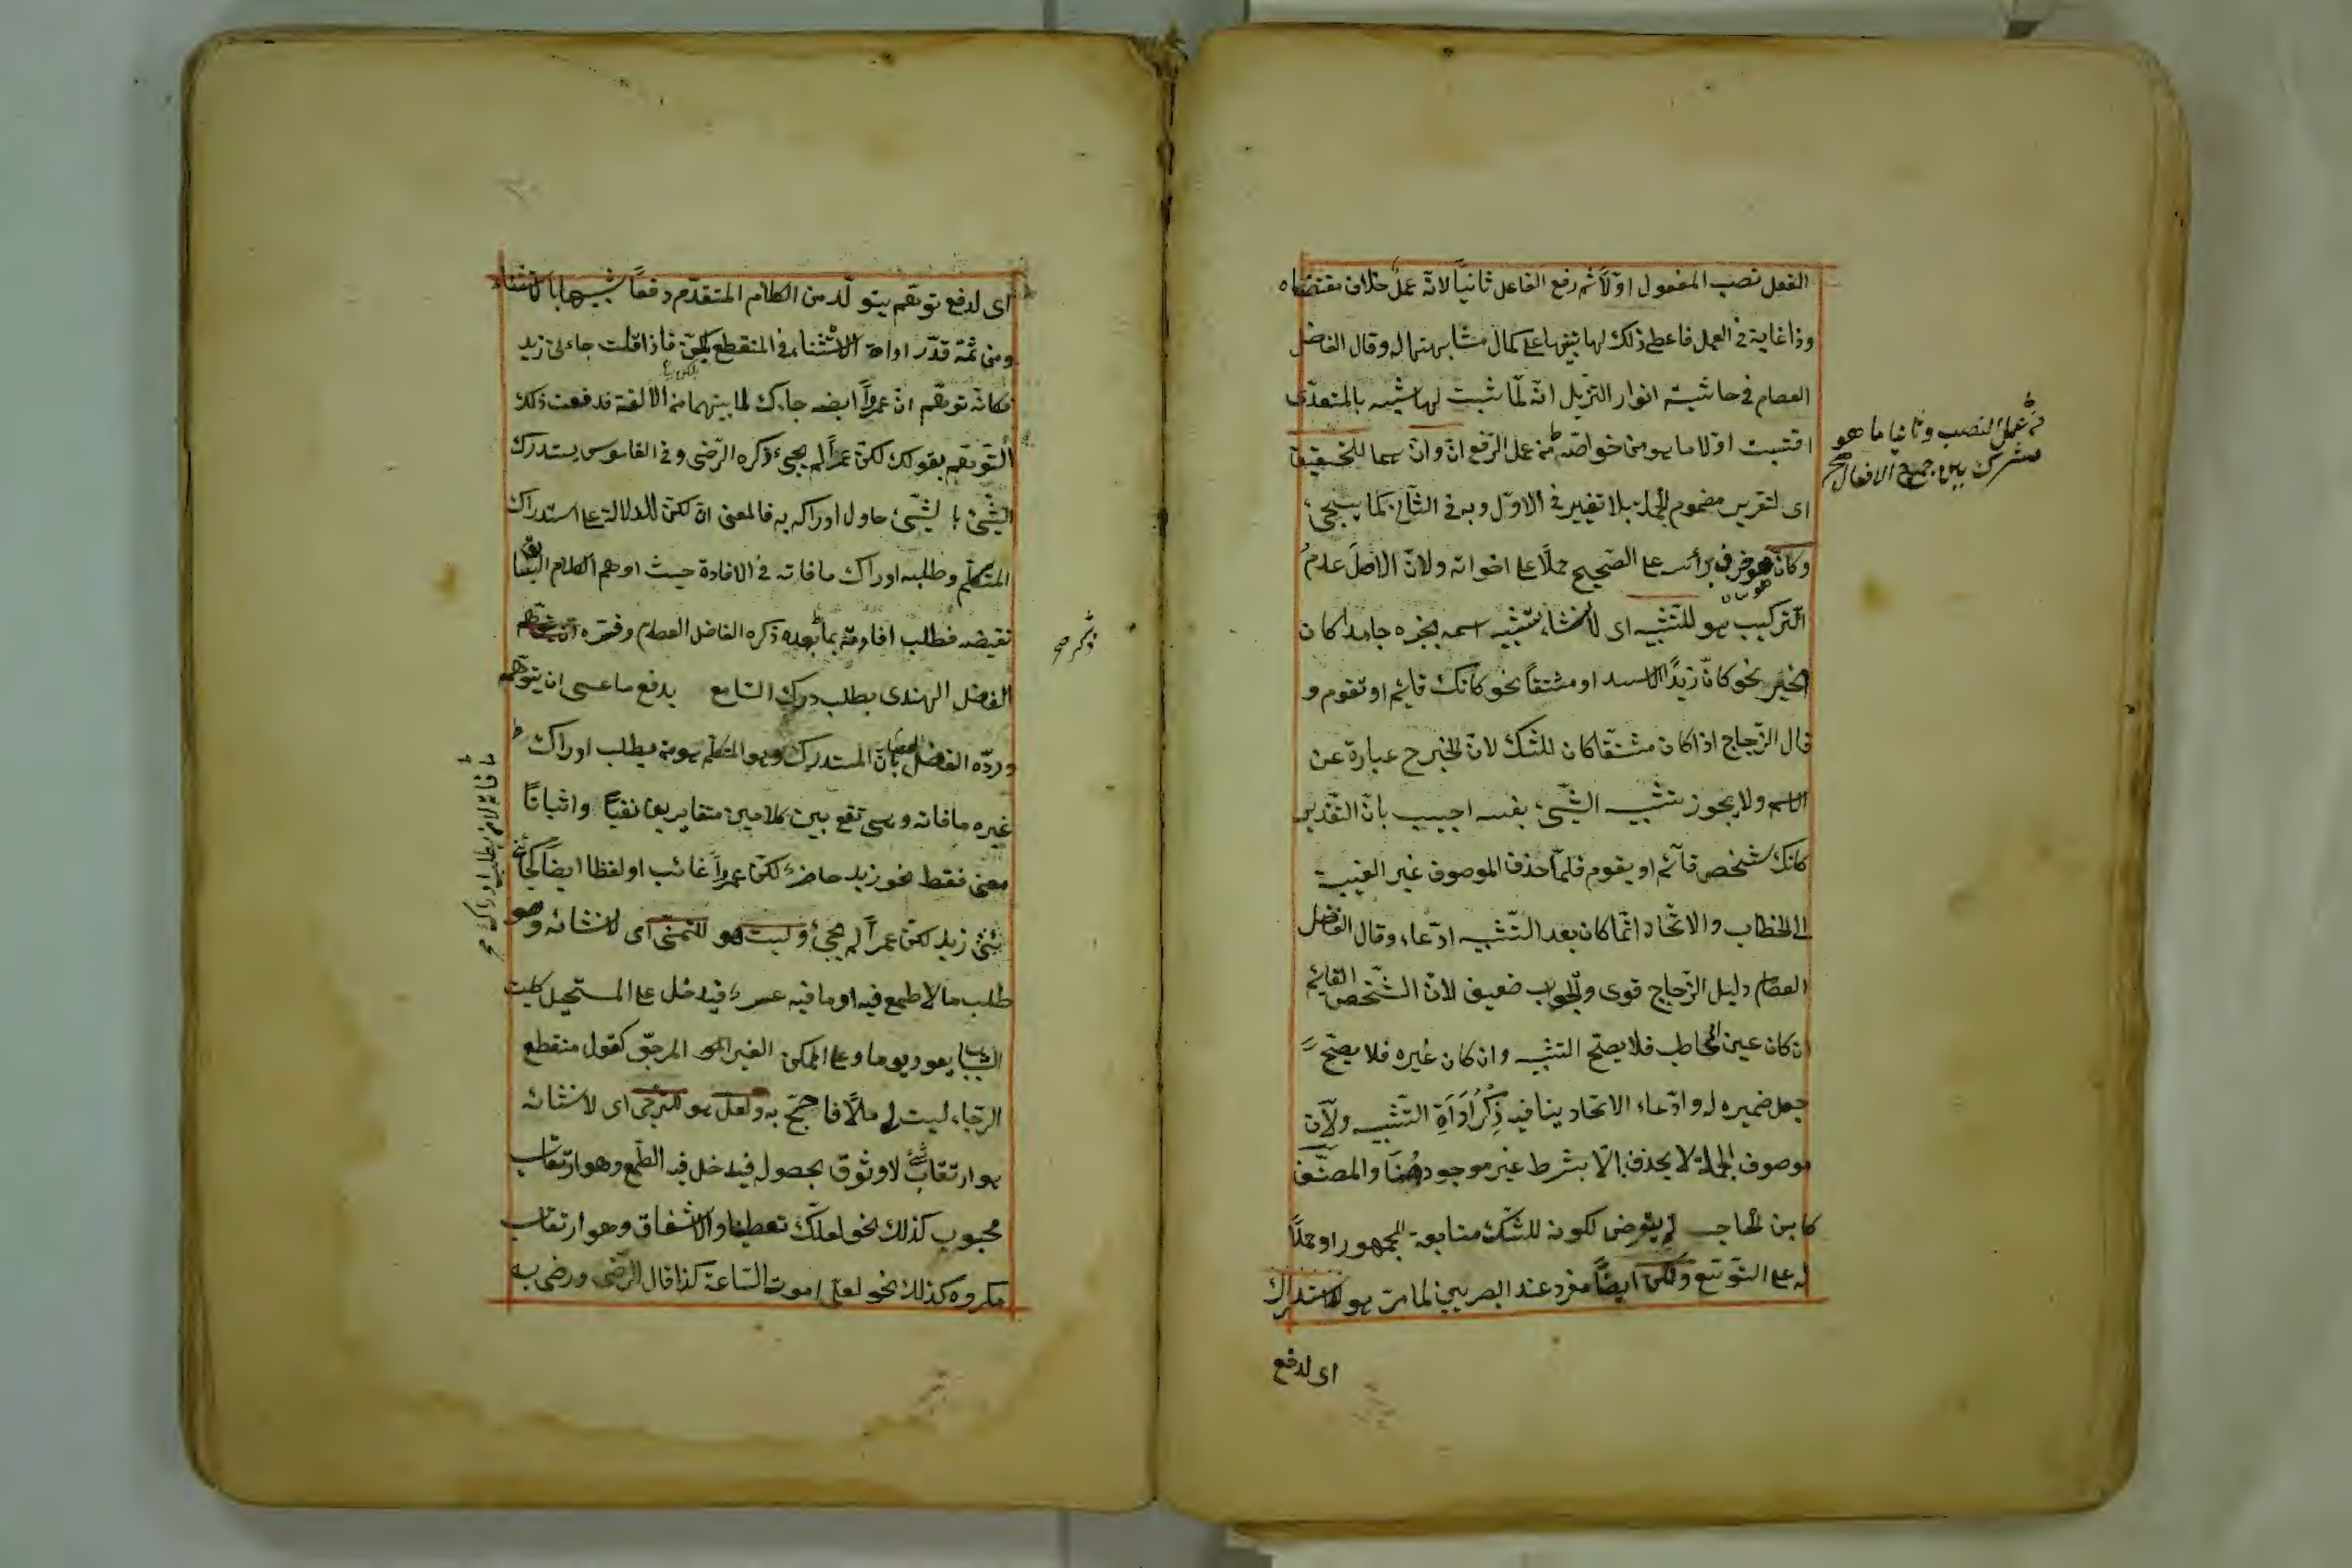 الفعل نصب المفعول اوّلاً ثم رفع الفاعل ثانياً لانّه عمل خلاف مقتضاه
وذا غاية فى العمل فاعطى ذلك لها تنبيها على كمال مشابهتها له وقال الفاضل
العصام فى حاشية انوار التنزيل انّه لمّا ثبت لها شبه بالمتعدّى
اقتبست اولا ما هو من خواصّه من عمل الرّفع انّ وانّ هما للتحقيق
اى لتقرير مضمون الجملة بلا تغيير فى الاوّل وبه فى الثّانى كما يسيجئ
وكأنّ هو حرف برأسه على الصّحيح حملاً على اخواته ولانّ الاصل عدم
التّركيب هو للتّشبيه اى لانشاء تشبيه اسمه بخبره جامدا كان
الخبر نحو كانّ زيداً الاسد او مشتقاً نحو كانك قائم او تقوم و
قال الزّجاج اذا كان مشتقّا كان للشّك لانّ الخبر ح عبارة عن
الاسم ولا يجوز تشبيه الشّىء بنفسه اجيب بانّ التّقدير
كانك شخص قائم او يقوم فلمّا حذف الموصوف غير الغيبة
الى الخطاب والاتّحاد انّما كان بعد التّشبيه ادّعاء وقال الفاضل
العصام دليل الزّجاج قوى والجواب ضعيف لانّ الشّخص القائم
ان كان عين المخاطب فلا يصحّ التشبيه وان كان غيره فلا يصحّ
جعل ضميره له وادّعاء الاتحاد ينافيه ذِكْرُ اَدَاةِ التّشبيه ولانّ
موصوف الجملة لا يحذف الّا بشرط غير موجود هُنَا والمصنّف
كابن الحاجب لم يتعرض لكونه للشّك متابعة للجمهور او حملاً
له على التّوسّع ولكنّ ايضاً مفرد عند البصريين لما مرّ هو للاستدراك
اى لدفع
من عمل النصب وثانيا ما هو
مشترك بين جميع الافعال صح
اى لدفع توهّم يتولّد من الكلام المتقدّم دفعاً شبيها بالاستثناء
ومن ثمّة قدّر اداة الاستثناء فى المنقطع بلكنّ فاذا قلت جاءنى زيد
فكانّه توهّم انّ عمرواً ايضا جاءك لما بينهما من الالفة فدفعت ذلك
التّوهّم بقولك لكنّ عمراً لم يجئ ذكره الرّضى وفى القاموس يستدرك
الشّئ بالشّئ حاول ادراكه به فالمعنى انّ لكنّ للدلالة على استدراك
المتكلّم وطلبه ادراك ما فاته فى الافادة حيث اوهم الكلام السّابق
نقيضه فطلب افادته بما بعده ذكره الفاضل العصام وفسّره
الفاضل الهندى بطلب درك السّامع بدفع ما عسى ان يتوهّمه
وردّه الفاضل العصام بانّ المستدرك وهو المتكلم هو من يطلب ادراك
غيره ما فاته وهى تقع بين كلامين متغايرين نفيًا واثباتًا
معنى فقط نحو زيد حاضر لكنّ عمرواً غائب او لفظا ايضاً كجائنى
زيد لكنّ عمراً لم يجئ وليت هو للتمنّى اى لانشائه وهو
طلب ما لا طمع فيه او ما فيه عسر فيدخل على المستحيل كليت
الشباب يعود يوما وعلى الممكن الغير المرجوّ كقول منقطع
الرّجاء ليت لى مالاً فاحجّ به ولعلّ هو للترجّى اى لانشائه
هو ارتقاب شئ لا وثوق بحصوله فيدخل فيه الطّمع وهو ارتقاب
محبوب كذلك نحو لعلّك تعطينا والاشفاق وهو ارتقاب
مكروه كذلك نحو لعلّى اموت السّاعة كذا قال الرّضى ورضى به